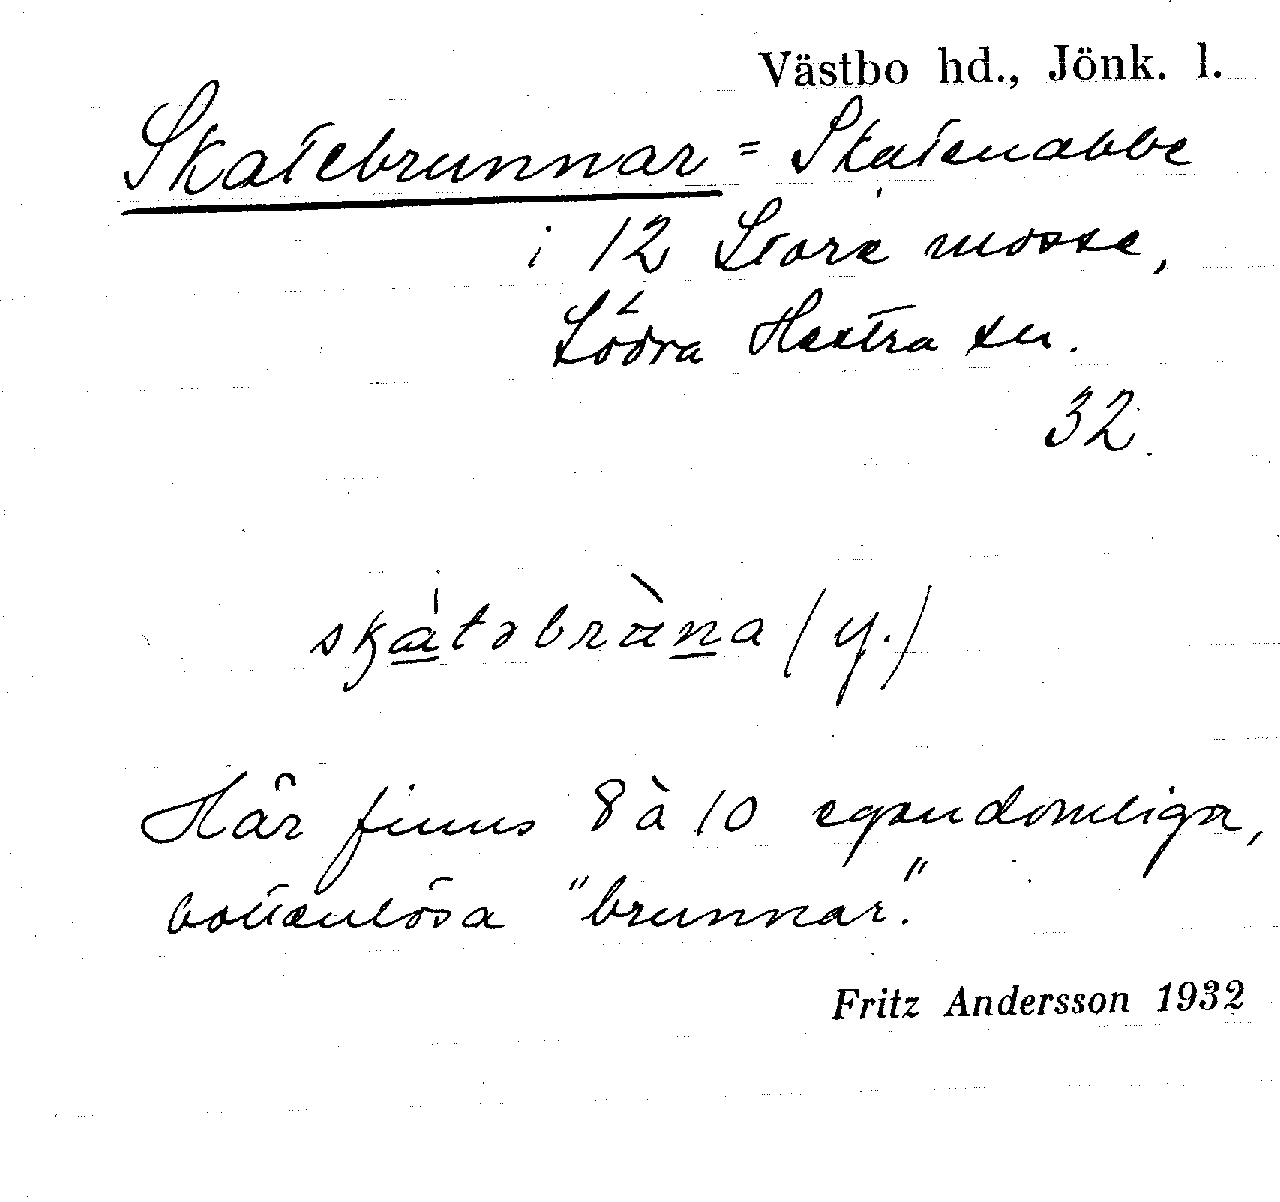 Västbo hd., Jönk. l.
Skatebrunnar = Skatenabbe
i 12 Stora mosse,
Södra Hestra sn.
32
skàtəbràna (y.)
Här finns 8 à 10 egendomliga,
bottenlösa "brunnar."
Fritz Andersson 1932